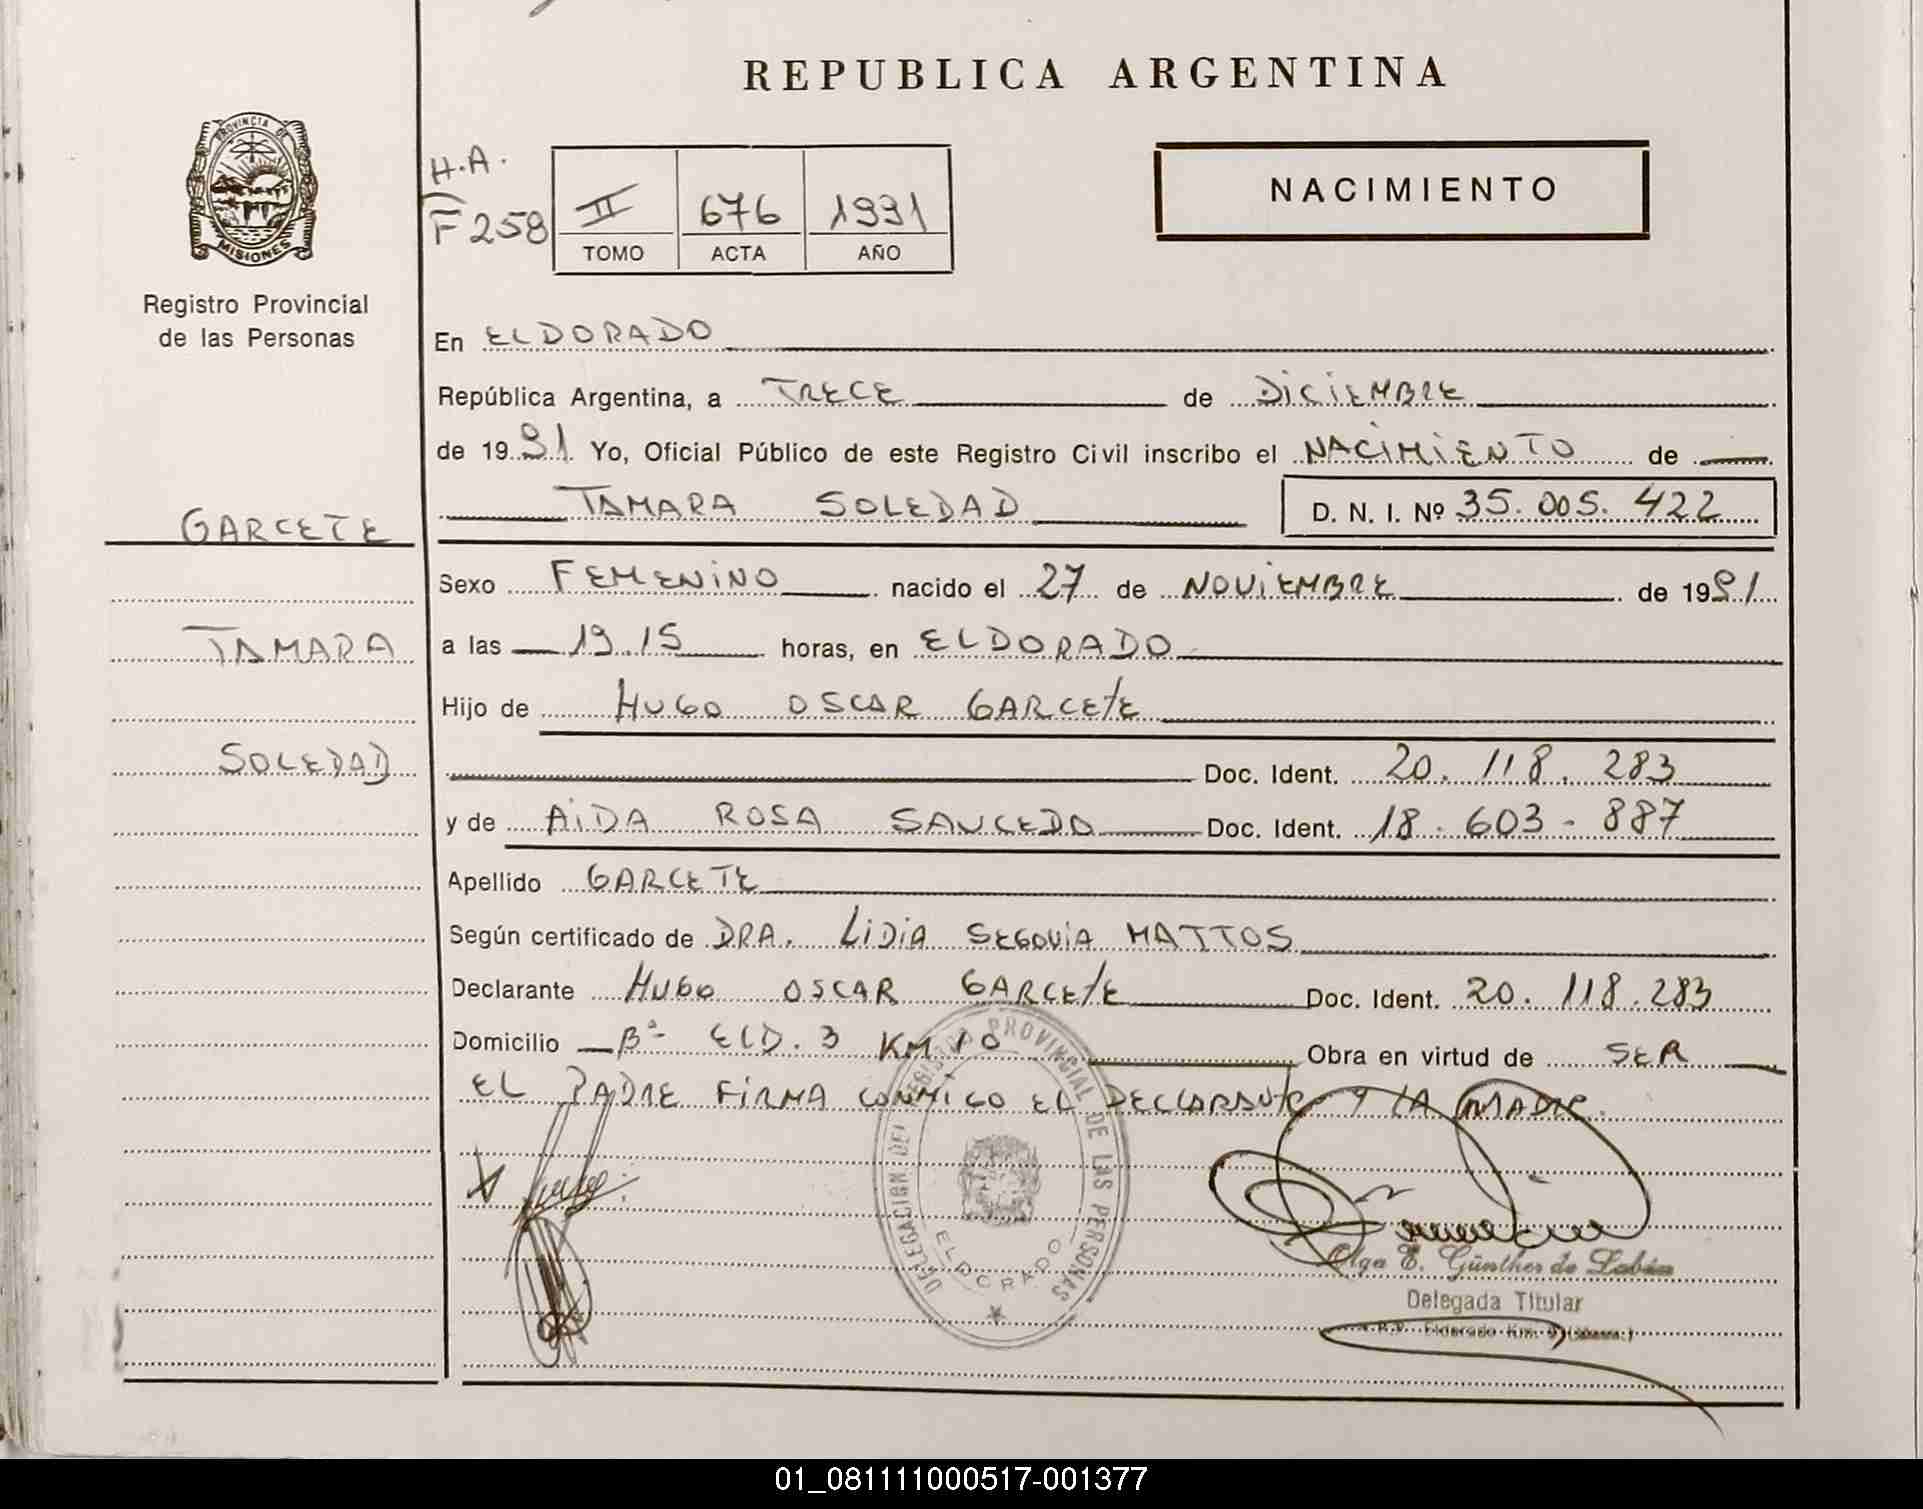 REPUBLICA ARGENTINA
PROVINCIA DE
MISIONES
Registro Provincial
de las Personas
H.A.
F 258
II 676 1991
TOMO ACTA AÑO
NACIMIENTO
En ELDORADO
República Argentina, a TRECE de DICIEMBRE
de 1991 Yo, Oficial Público de este Registro Civil inscribo el NACIMIENTO de
TAMARA SOLEDAD D. N. I. Nº 35.005.422
GARCETE
TAMARA
SOLEDAD
Sexo FEMENINO nacido el 27 de NOVIEMBRE de 1991
a las 19.15 horas, en ELDORADO
Hijo de HUGO OSCAR GARCETE
Doc. Ident. 20.118.283
y de AIDA ROSA SAUCEDO Doc. Ident. 18.603-887
Apellido GARCETE
Según certificado de DRA. LIDIA SEGOVIA MATTOS
Declarante HUGO OSCAR GARCETE Doc. Ident. 20.118.283
Domicilio Bº ELD. 3 KM 10 Obra en virtud de SER
EL PADRE FIRMA CONMIGO EL DECLARANTE Y LA MADRE.
DELEGACION DEL REGISTRO PROVINCIAL DE LAS PERSONAS
ELDORADO
Olga E. Günther de
Delegada Titular
R.P. Eldorado Km. 9
01_081111000517-001377